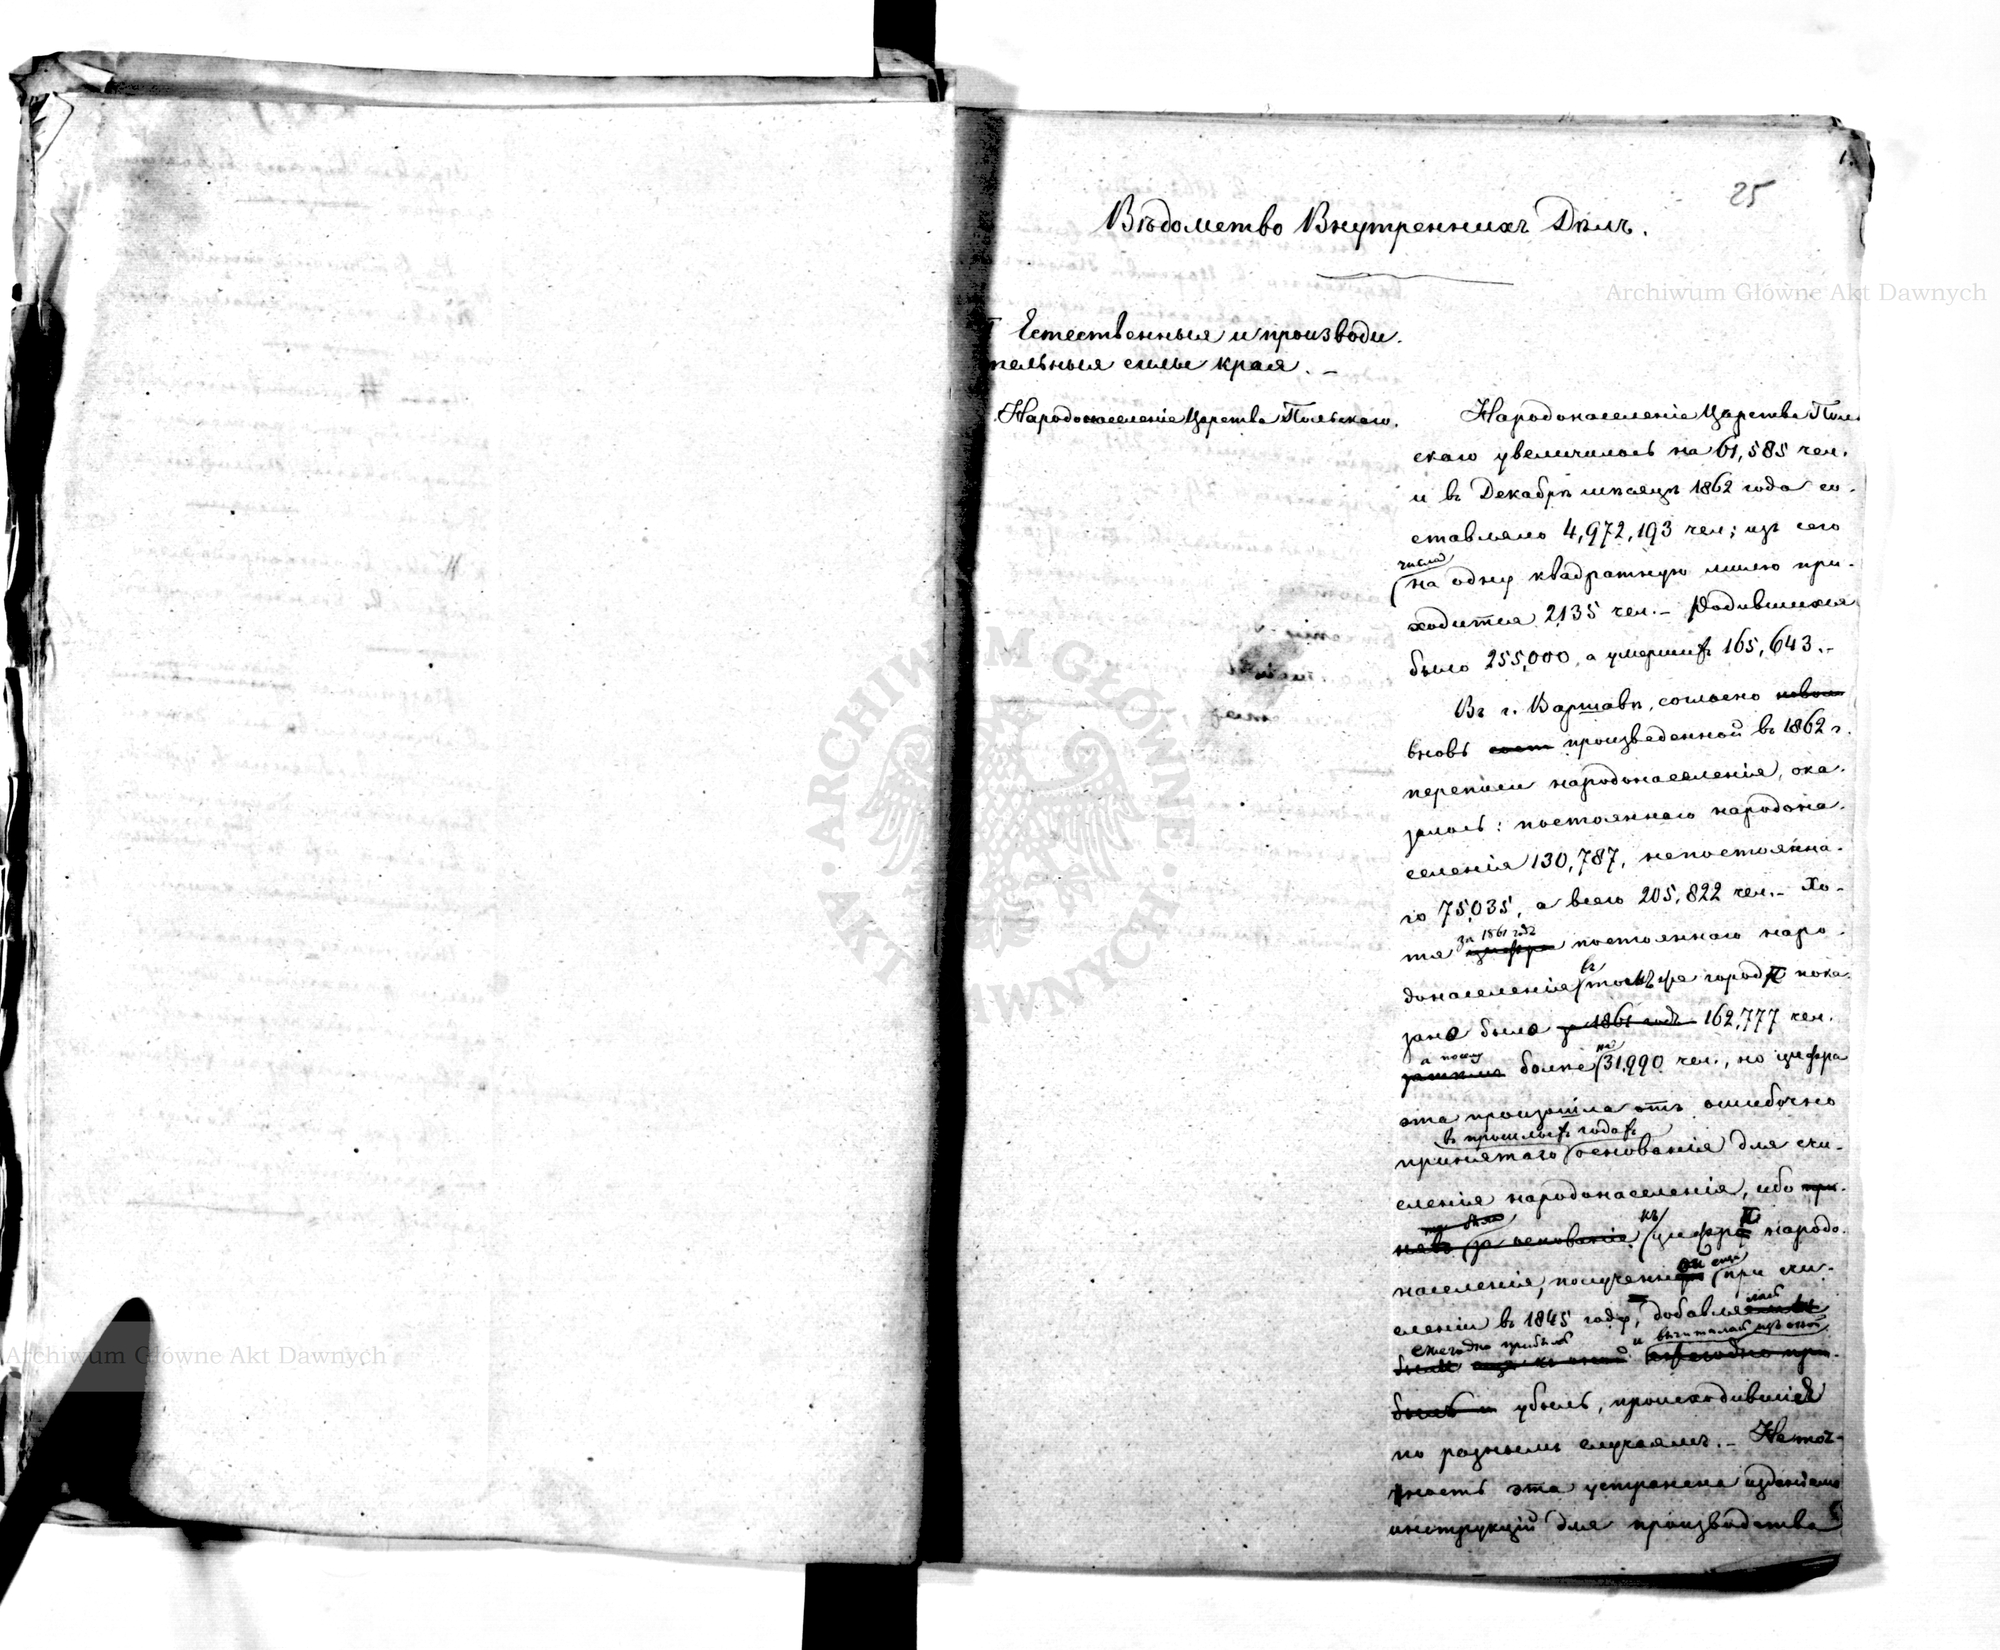 25
Вѣдомство Внутреннихъ Дѣлъ.
Archiwum Główne Akt Dawnych
I Естественныя и производи-
тельныя силы края. –
Народонаселеніе Царства Польскаго.
Народонаселеніе Царства Поль
скаго увеличилось на 61,585 чел.
и въ Декабрѣ мѣсяцѣ 1862 года со-
ставляло 4,972,193 чел; изъ сего
числа
на одну квадратную милю при-
ходится 2135 чел. – Родившихся
было 255,000, а умершихъ 165,643. –
Въ г. Варшавѣ, согласно
вновь произведенной въ 1862 г.
переписи народонаселенія, ока-
залось: постояннаго народона-
селенія 130,787, непостоянна-
го 75,035, а всего 205,822 чел. – Хо-
за 1861 годъ
тя цифра постояннаго наро-
въ
донаселенія томъ же городѣ пока-
зано было за 1861 годъ 162,777 чел.
а посему на
болѣе 31,990 чел., но цифра
эта произошла отъ ошибочно
въ прошлыхъ годахъ
принятаго основанія для счи-
сленія народонаселенія, ибо при-
къ
нявъ за основаніе цифрѣ народо-
населенія, полученной еще при счи-
сленіи въ 1845 году, добавля
ежегодно прибыль и вычитали изъ оной
были еще къ оной ежегодно при-
быль и убыль, происходившія
по разнымъ случаямъ. – Неточ-
ность эта устранена изданіемъ
инструкціи для производства
ARCHIWUM GŁÓWNE AKT DAWNYCH
Archiwum Główne Akt Dawnych